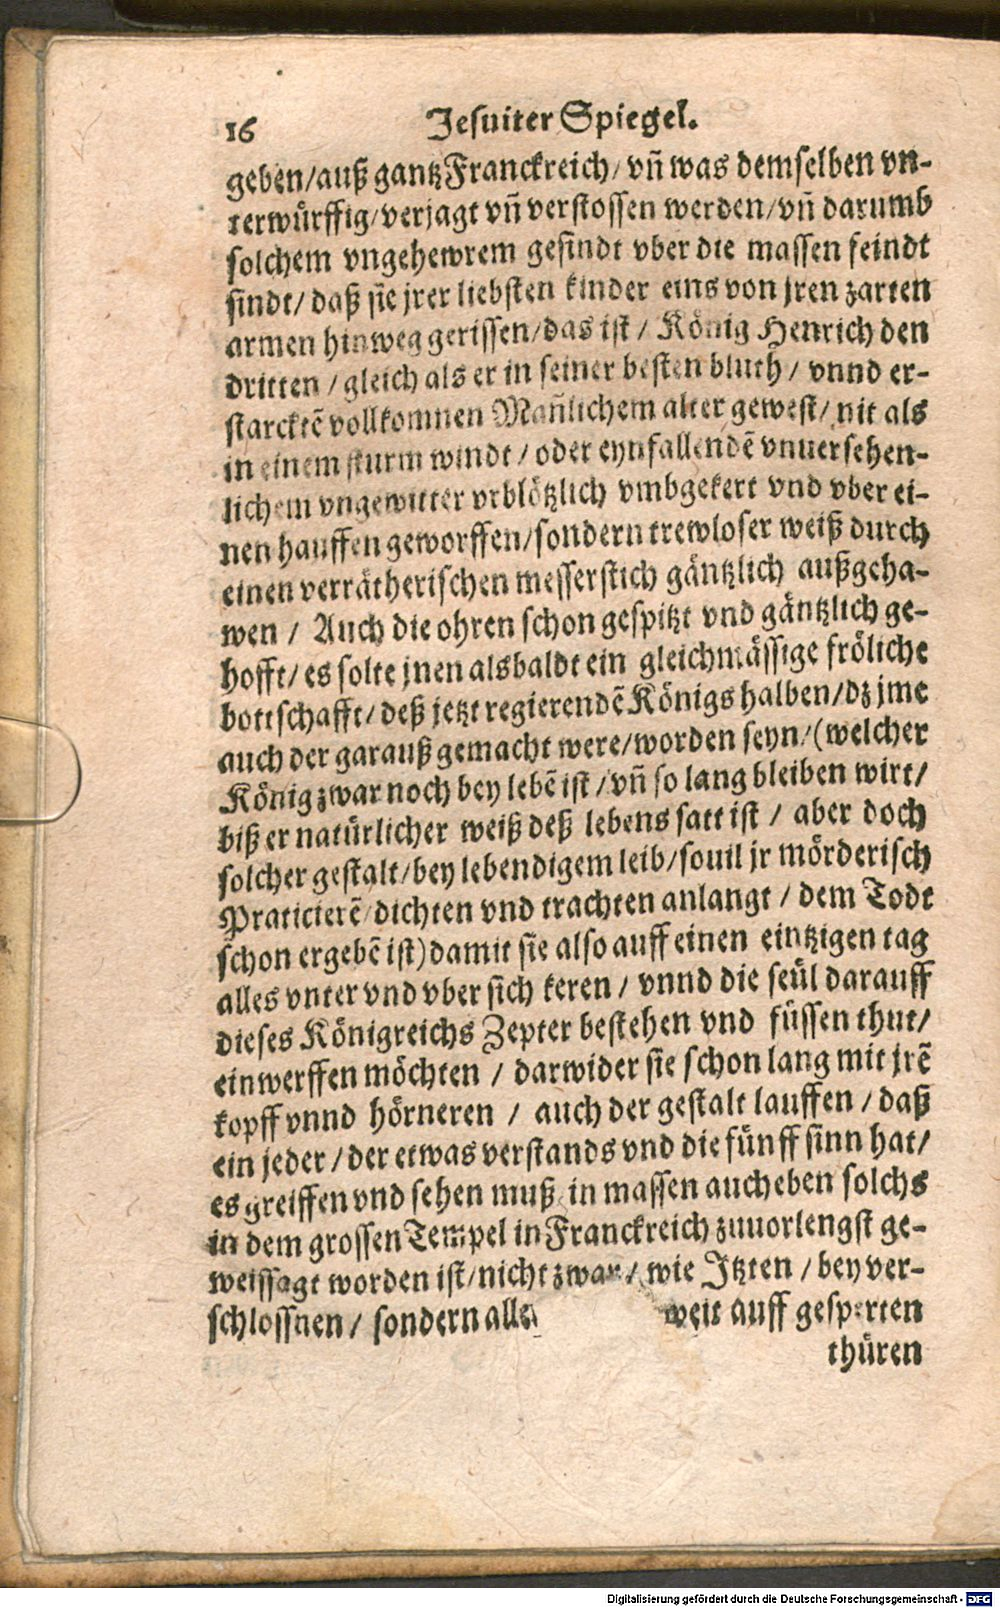 16 Jesuiter Spiegel.
geben/auß gantz Franckreich/ vn̄ was demselben vn-
terwürffig/verjagt vn̄ verstossen werden/vn̄ darumb
solchem vngehewrem gesindt vber die massen feindt
sindt/ daß sie jrer liebsten kinder eins von jren zarten
armen hinweg gerissen/das ist/ König Henrich den
dritten /gleich als er in seiner besten bluth/ vnnd er-
starcktē vollkomnen Mañlichem alter gewest/ nit als
in einem sturm windt / oder eynfallendē vnuersehen-
lichem vngewitter vrblötzlich vmbgekert vnd vber ei-
nen hauffen geworffen/sondern trewloser weiß durch
einen verrätherischen messerstich gäntzlich außgeha-
wen / Auch die ohren schon gespitzt vnd gäntzlich ge-
hofft/ es solte jnen alsbaldt ein gleichmässige fröliche
bottschafft/ deß jetzt regierendē Königs halben/dz jme
auch der garauß gemacht were/worden seyn/(welcher
König zwar noch bey lebē ist/ vn̄ so lang bleiben wirt/
biß er natürlicher weiß deß lebens satt ist / aber doch
solcher gestalt/bey lebendigem leib/souil jr mörderisch
Practicierē/dichten vnd trachten anlangt / dem Todt
schon ergebē ist)damit sie also auff einen eintzigen tag
alles vnter vnd vber sich keren / vnnd die seül darauff
dieses Königreichs Zepter bestehen vnd füssen thut/
einwerffen möchten / darwider sie schon lang mit jrē
kopff vnnd hörneren / auch der gestalt lauffen / daß
ein jeder / der etwas verstands vnd die fünff sinn hat/
es greiffen vnd sehen muß/ in massen auch eben solchs
in dem grossen Tempel in Franckreich zuuorlengst ge-
weissagt worden ist/nicht zwar/ wie Jtzten / bey ver-
schlossnen / sondern alle weit auff gesperten
thüren
Digitalisierung gefördert durch die Deutsche Forschungsgemeinschaft - DFG